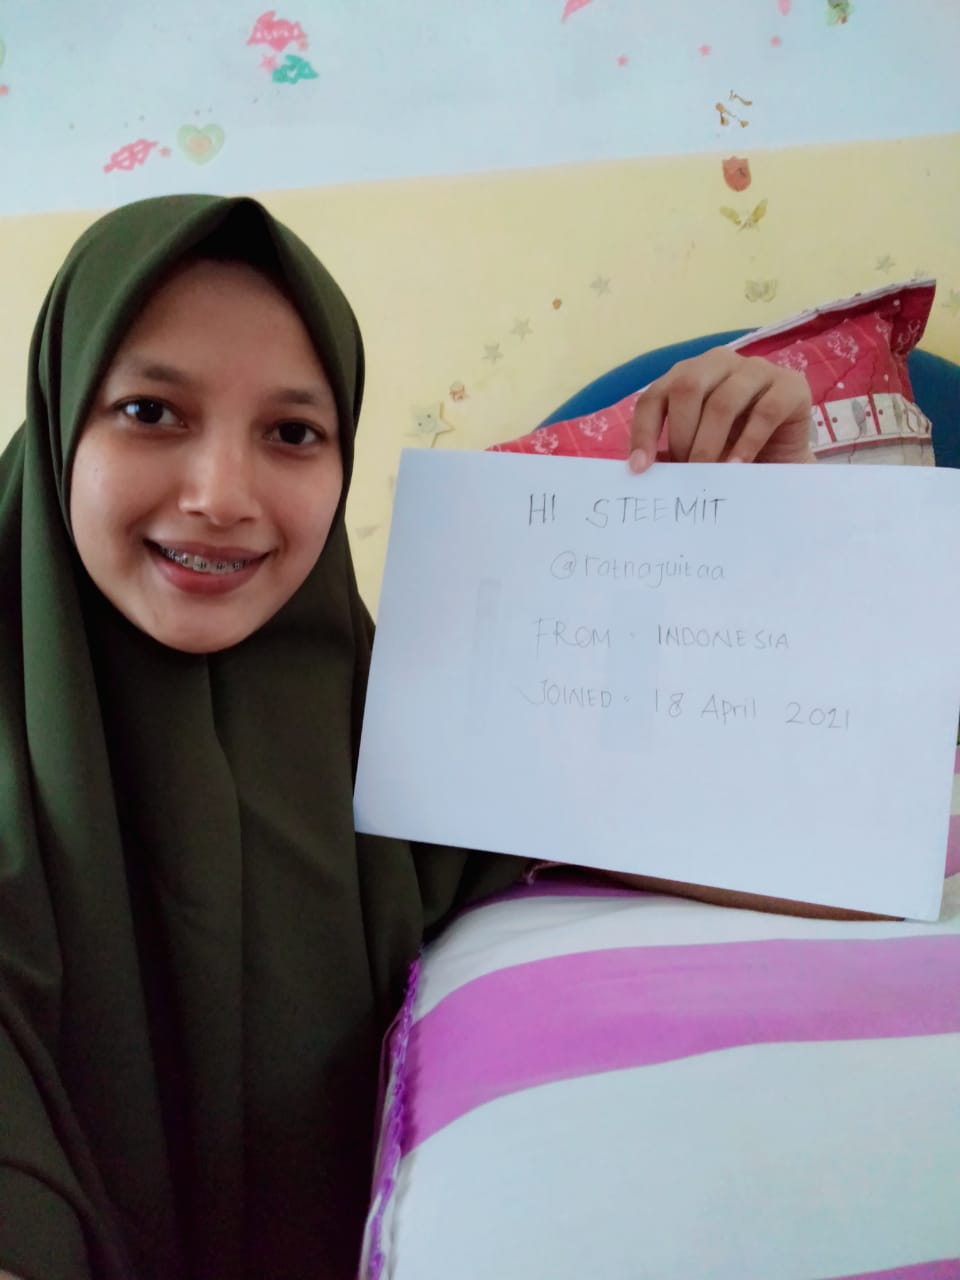 HI STEEMIT
@ratnajuitaa
FROM : INDONESIA
JOINED : 18 April 2021